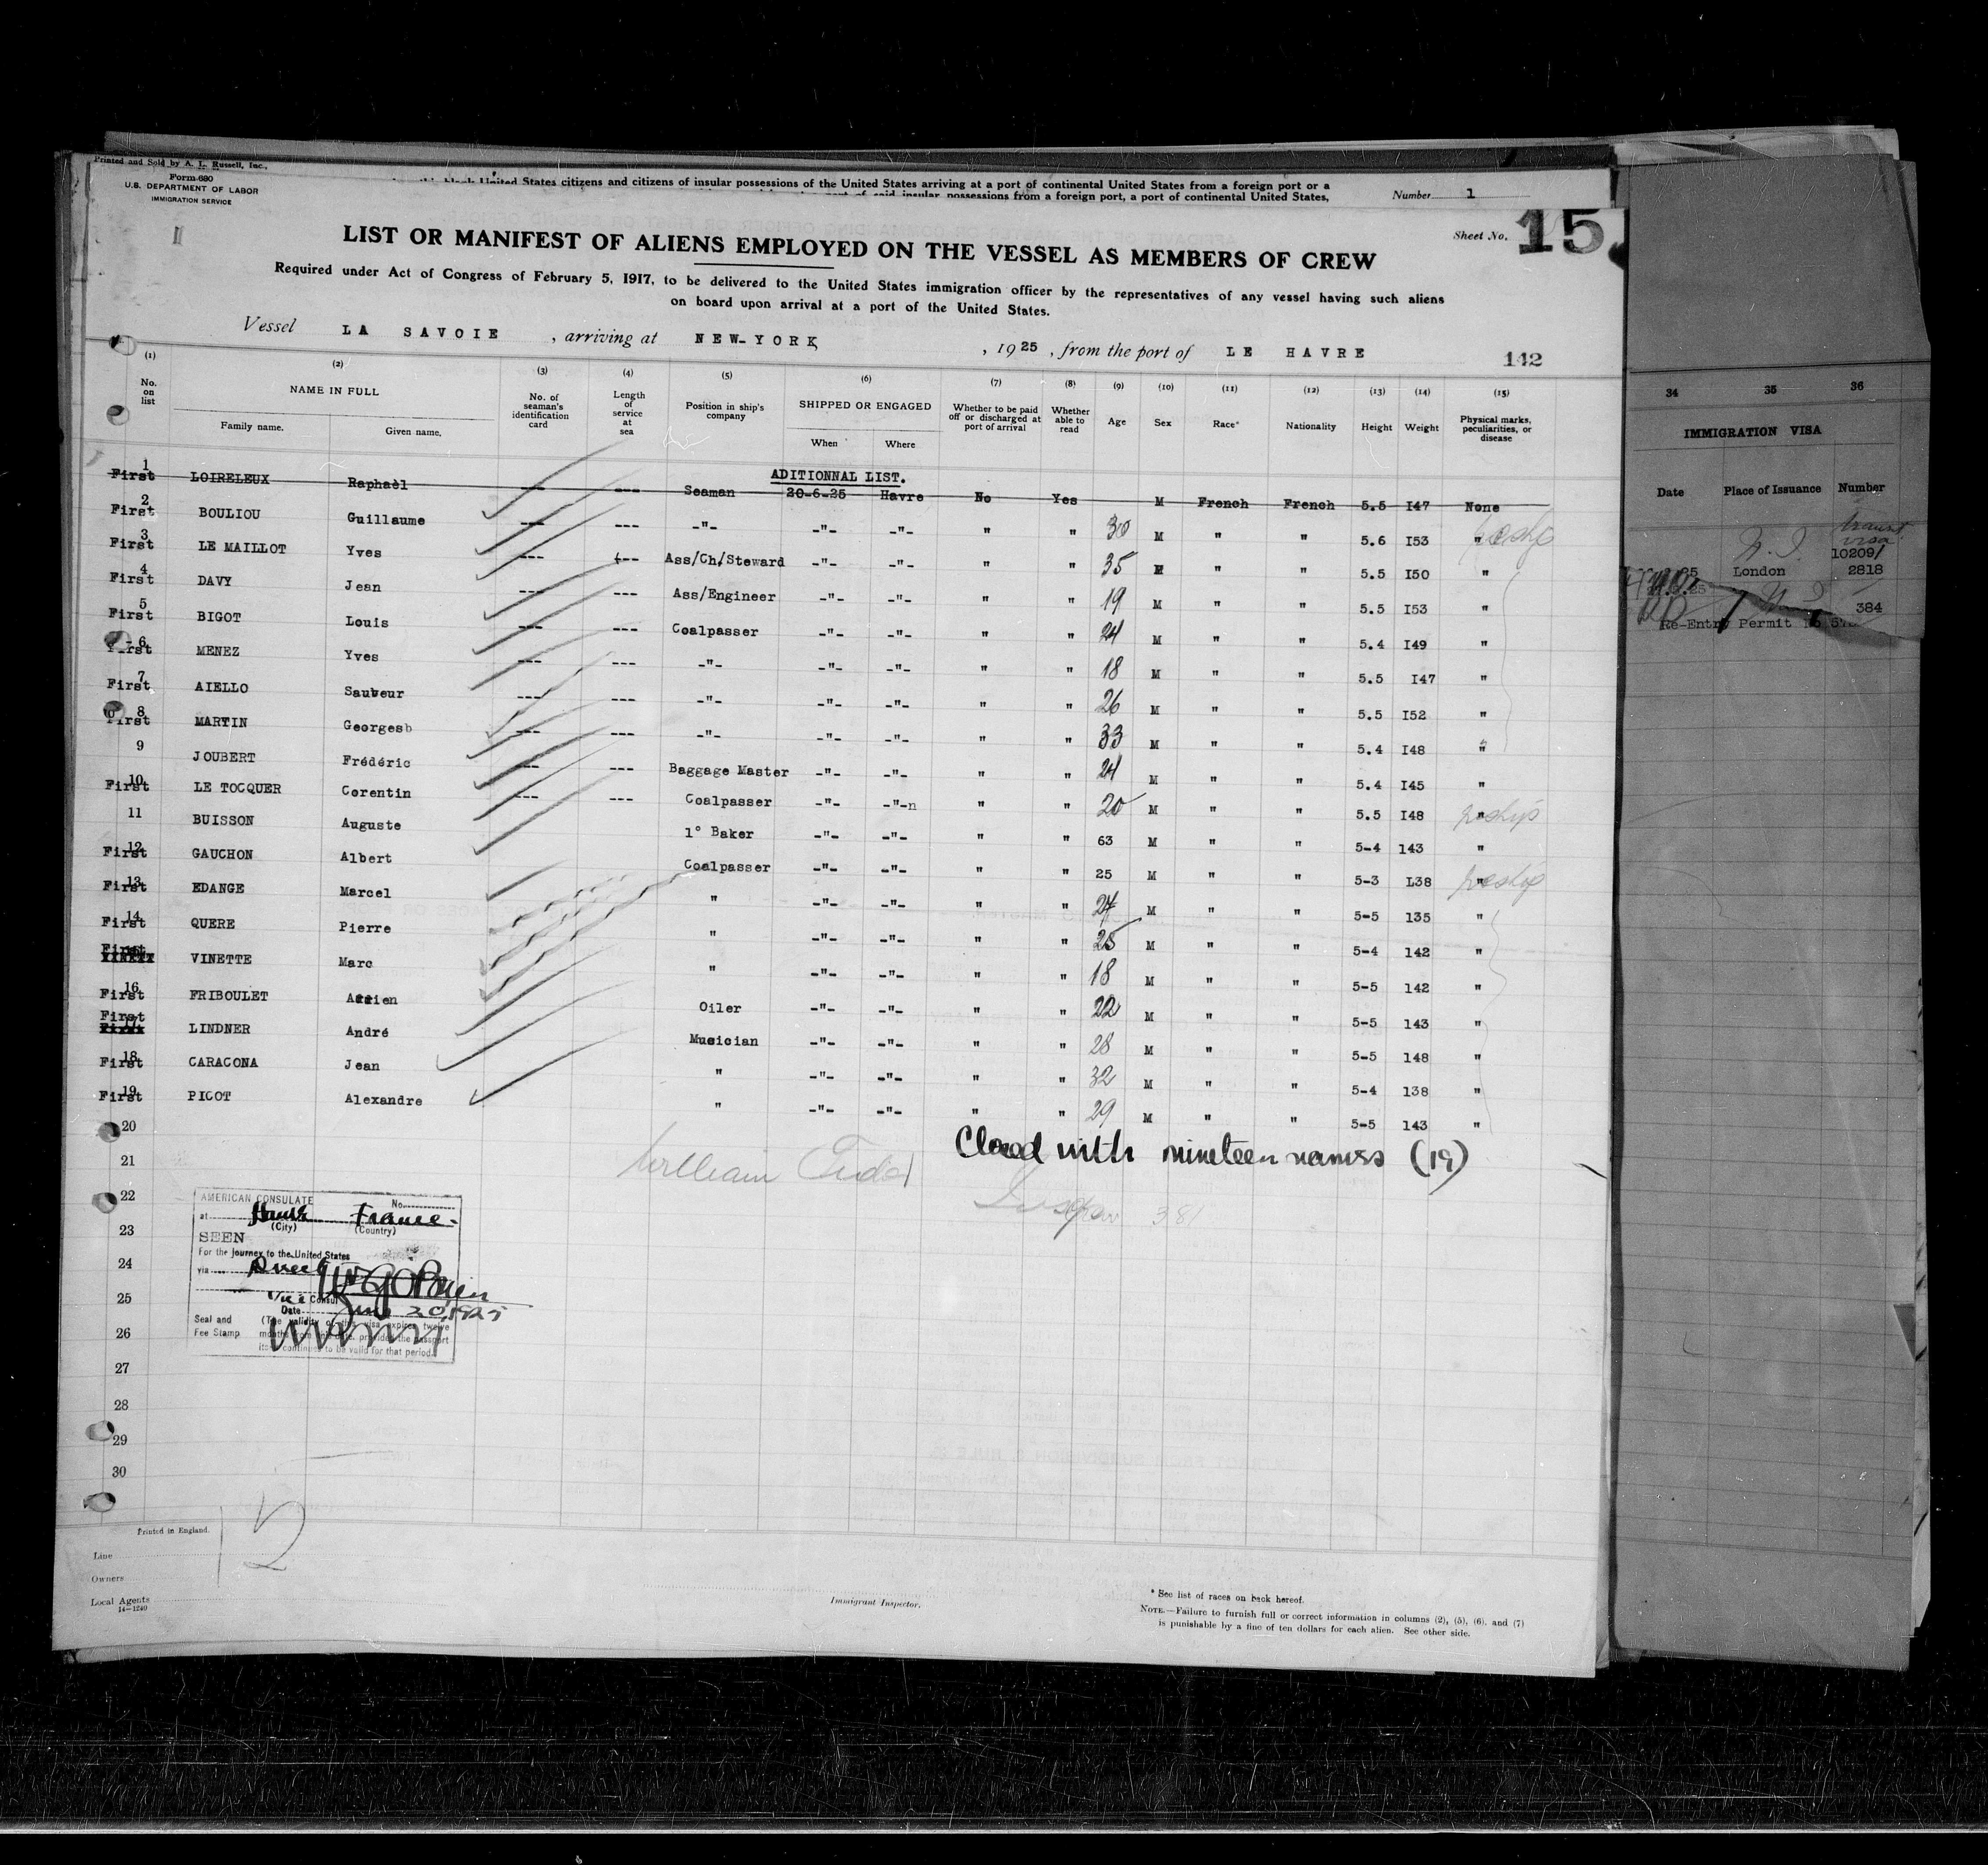 Printed and Sold by A. L. Russell, Inc.,
Form 680
U.S. DEPARTMENT OF LABOR
IMMIGRATION SERVICE
United States citizens and citizens of insular possessions of the United States arriving at a port of continental United States from a foreign port or a
of said insular possessions from a foreign port, a port of continental United States,
Number 1
Sheet No. 15
LIST OR MANIFEST OF ALIENS EMPLOYED ON THE VESSEL AS MEMBERS OF CREW
Required under Act of Congress of February 5, 1917, to be delivered to the United States immigration officer by the representatives of any vessel having such aliens
on board upon arrival at a port of the United States.
Vessel LA SAVOIE , arriving at NEW-YORK , 1925 , from the port of LE HAVRE
142
(1) (2) (3) (4) (5) (6) (7) (8) (9) (10) (11) (12) (13) (14) (15)
No. on list NAME IN FULL Family name. Given name. No. of seaman's identification card Length of service at sea Position in ship's company SHIPPED OR ENGAGED When Where Whether to be paid off or discharged at port of arrival Whether able to read Age Sex Race* Nationality Height Weight Physical marks, peculiarities, or disease
ADITIONNAL LIST.
1 First LOIRELEUX Raphaèl --- --- Seaman 20-6-25 Havre No Yes M French French 5.5 I47 None
2 First BOULIOU Guillaume --- --- -"- -"- -"- " " 30 M " " 5.6 I53 "
3 First LE MAILLOT Yves --- --- Ass/Ch/Steward -"- -"- " " 35 M " " 5.5 I50 "
4 First DAVY Jean --- --- Ass/Engineer -"- -"- " " 19 M " " 5.5 I53 "
5 First BIGOT Louis --- --- Coalpasser -"- -"- " " 24 M " " 5.4 I49 "
6 First MENEZ Yves --- --- -"- -"- -"- " " 18 M " " 5.5 I47 "
7 First AIELLO Sauveur --- --- -"- -"- -"- " " 26 M " " 5.5 I52 "
8 First MARTIN Georgesb --- --- -"- -"- -"- " " 33 M " " 5.4 I48 "
9 JOUBERT Frédéric --- --- Baggage Master -"- -"- " " 24 M " " 5.4 I45 "
10 First LE TOCQUER Corentin --- --- Coalpasser -"- -"-n " " 20 M " " 5.5 I48 "
11 BUISSON Auguste 1° Baker -"- -"- " " 63 M " " 5-4 143 "
12 First GAUCHON Albert Coalpasser -"- -"- " " 25 M " " 5-3 138 "
13 First EDANGE Marcel " -"- -"- " " 24 M " " 5-5 135 "
14 First QUERE Pierre " -"- -"- " " 25 M " " 5-4 142 "
First VINETTE Marc " -"- -"- " " 18 M " " 5-5 142 "
16 First FRIBOULET Oiler -"- -"- " " 22 M " " 5-5 143 "
17 First LINDNER André Musician -"- -"- " " 28 M " " 5-5 148 "
18 First CARACONA Jean " -"- -"- " " 32 M " " 5-4 138 "
19 First PICOT Alexandre " -"- -"- " " 29 M " " 5-5 143 "
20
Closed with nineteen names (19)
21
William
22
381
23
24
25
26
27
28
29
30
AMERICAN CONSULATE
No.
at Havre France.
(City) (Country)
SEEN
For the journey to the United States
via Direct
Vice Consul
Date June 20, 1925
Seal and Fee Stamp
(The validity of this visa expires twelve
months from this date, provided the passport
continues to be valid for that period.)
15
Printed in England.
Line
Owners
Local Agents
14-1240
Immigrant Inspector.
* See list of races on back hereof.
NOTE.—Failure to furnish full or correct information in columns (2), (5), (6), and (7)
is punishable by a fine of ten dollars for each alien. See other side.
34 35 36
IMMIGRATION VISA
Date Place of Issuance Number
transit visa
10209/
25 London 2818
384
Re-Entry Permit No